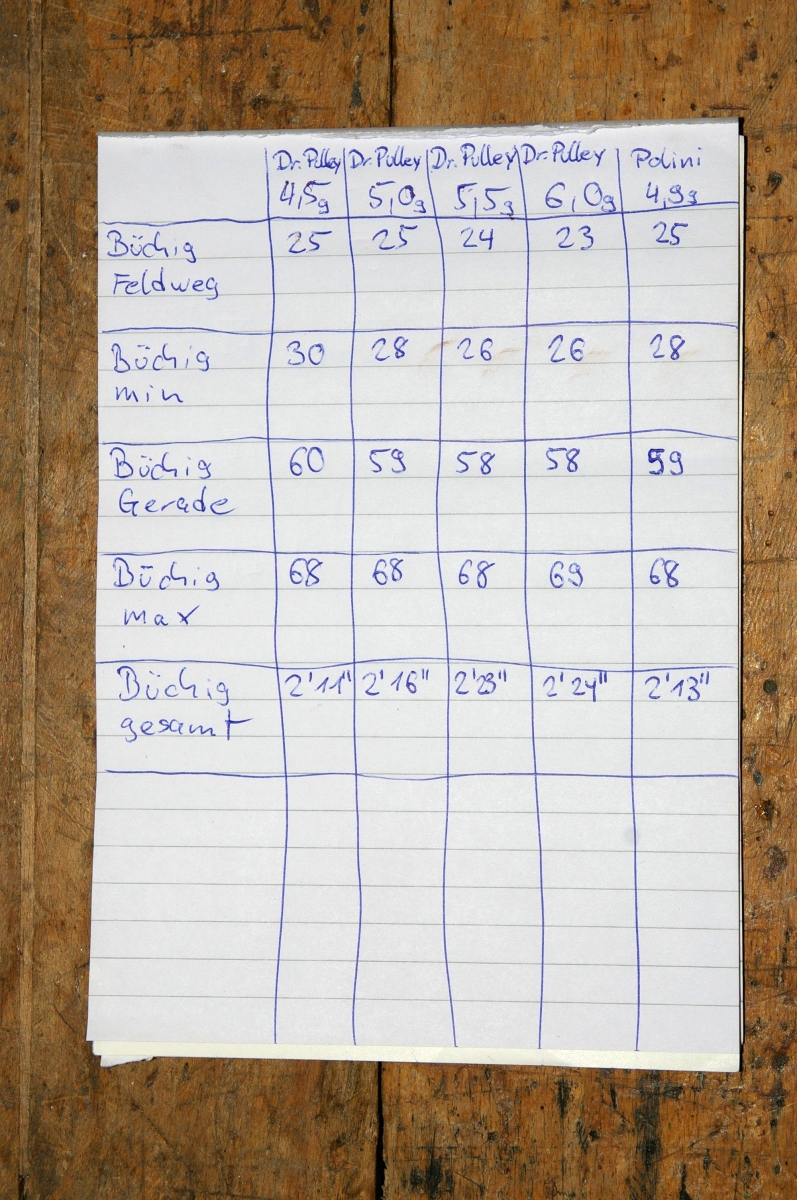 Dr. Pulley Dr. Pulley Dr. Pulley Dr. Pulley Polini
4,5g 5,0g 5,5g 6,0g 4,9g
Büchig 25 25 24 23 25
Feldweg
Büchig 30 28 26 26 28
min
Büchig 60 59 58 58 59
Gerade
Büchig 68 68 68 69 68
max
Büchig 2'11" 2'16" 2'23" 2'24" 2'13"
gesamt